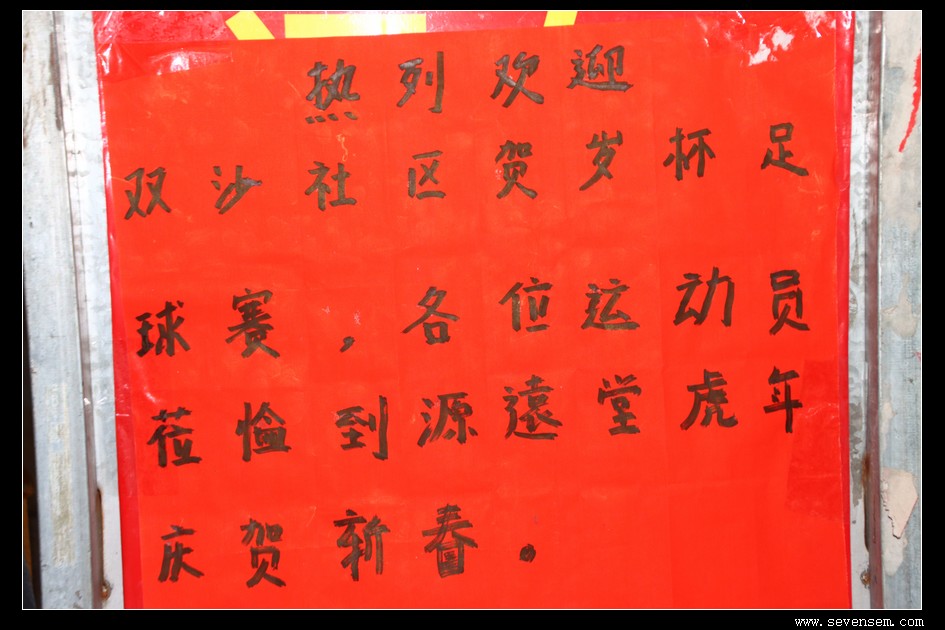 热列欢迎
双沙社区贺岁杯足
球赛，各位运动员
莅恤到源遠堂虎年
庆贺新春。
www.sevensem.com